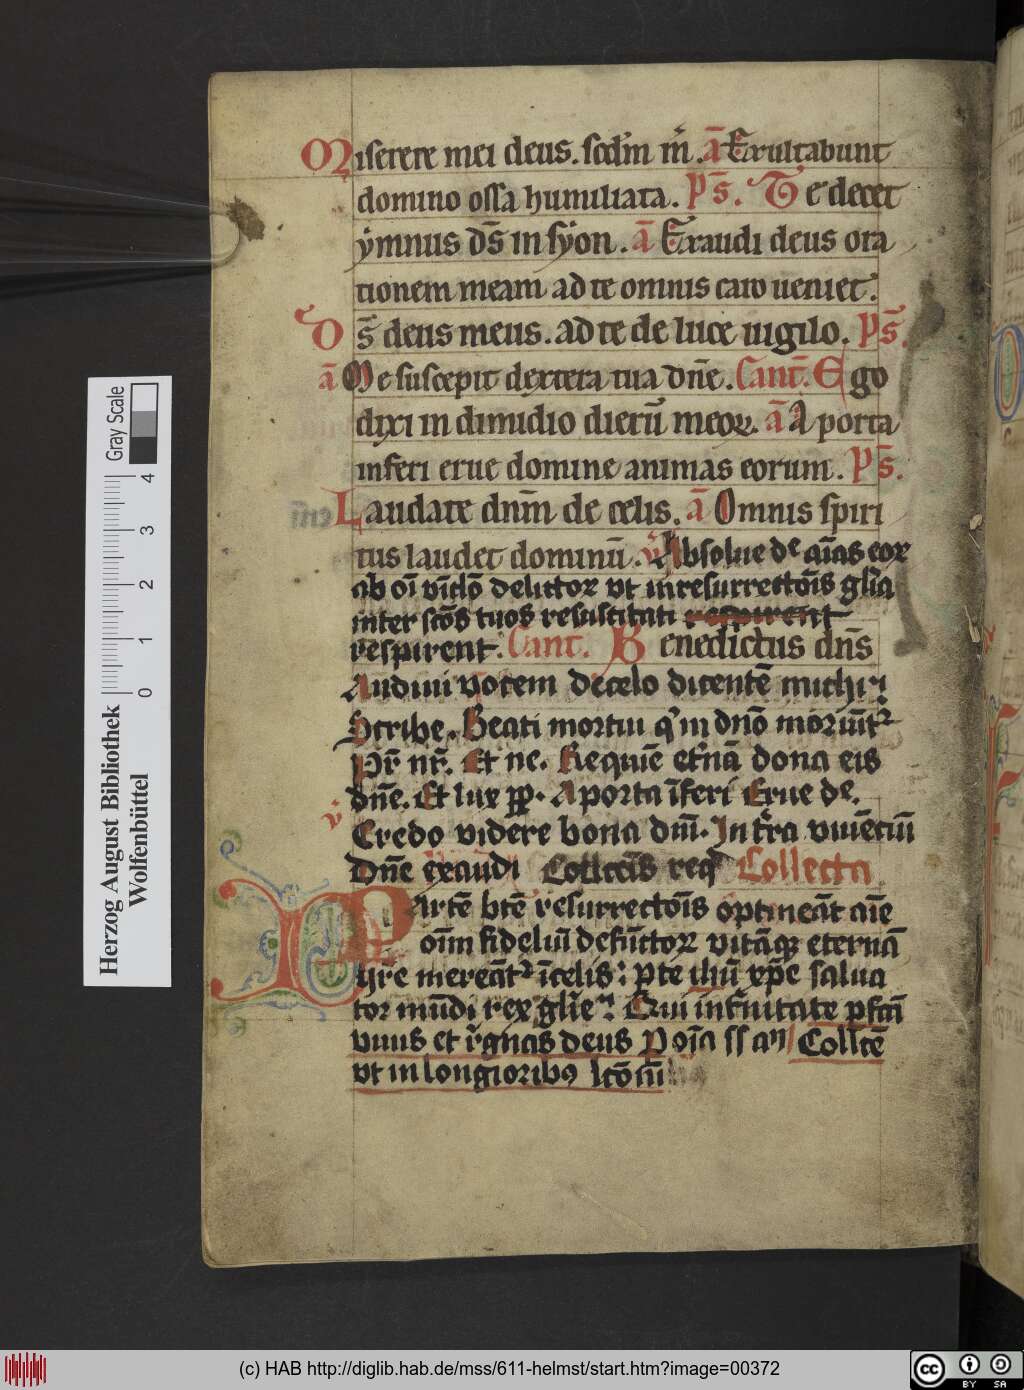 Miserere mei deus. scd'm m̄. ā Exultabunt
domino ossa humiliata. p̄s. Te decet
ẏmnus ds̄ in sẏon. ā Exaudi deus ora
tionem meam ad te omnis caro ueniet.
Ds̄ deus meus. ad te de luce uigilo. p̄s.
ā Me suscepit dextera tua dn̄e. Cant̄. Ego
dixi in dimidio dierū meoꝝ. ā A porta
inferi erue domine animas eorum. p̄s.
Laudate dnm̄ de celis. ā Omnis spiri
tus laudet dominū. v̄ Absolue de aīas eoꝝ
ab oī vīclo delictoꝝ vt in resurrectōis gl'ia
inter scōs tuos resuscitati respirent
respirent. Cant. Benedictus dn̄s
Audiui vocem de celo dicentē michi
Scribe. Beati mortui q' in dn̄o moriūt'
Pr̄ nr̄. Et ne. Requiē et'nā dona eis
dn̄e. Et lux pp̄. A porta īferi Erue de.
v̄ Credo videre bona dn̄i. In t'ra viuēciū
Dn̄e exaudi req Collecta
Partē btē resurrectōis optineāt aīe
oīm fideliū defūctoꝝ vitāqꝫ eternā
mereāt' ī celis: p te ihū xp̄e salua
tor mūdi rex gl'ie. Qui in t'nitate pfcā
viuis et r̄gnas deus P oīa ss am̄ Collcē
vt in longioribꝰ lcōiū
Herzog August Bibliothek
Wolfenbüttel
Gray Scale
0 1 2 3 4
(c) HAB http://diglib.hab.de/mss/611-helmst/start.htm?image=00372
cc BY SA